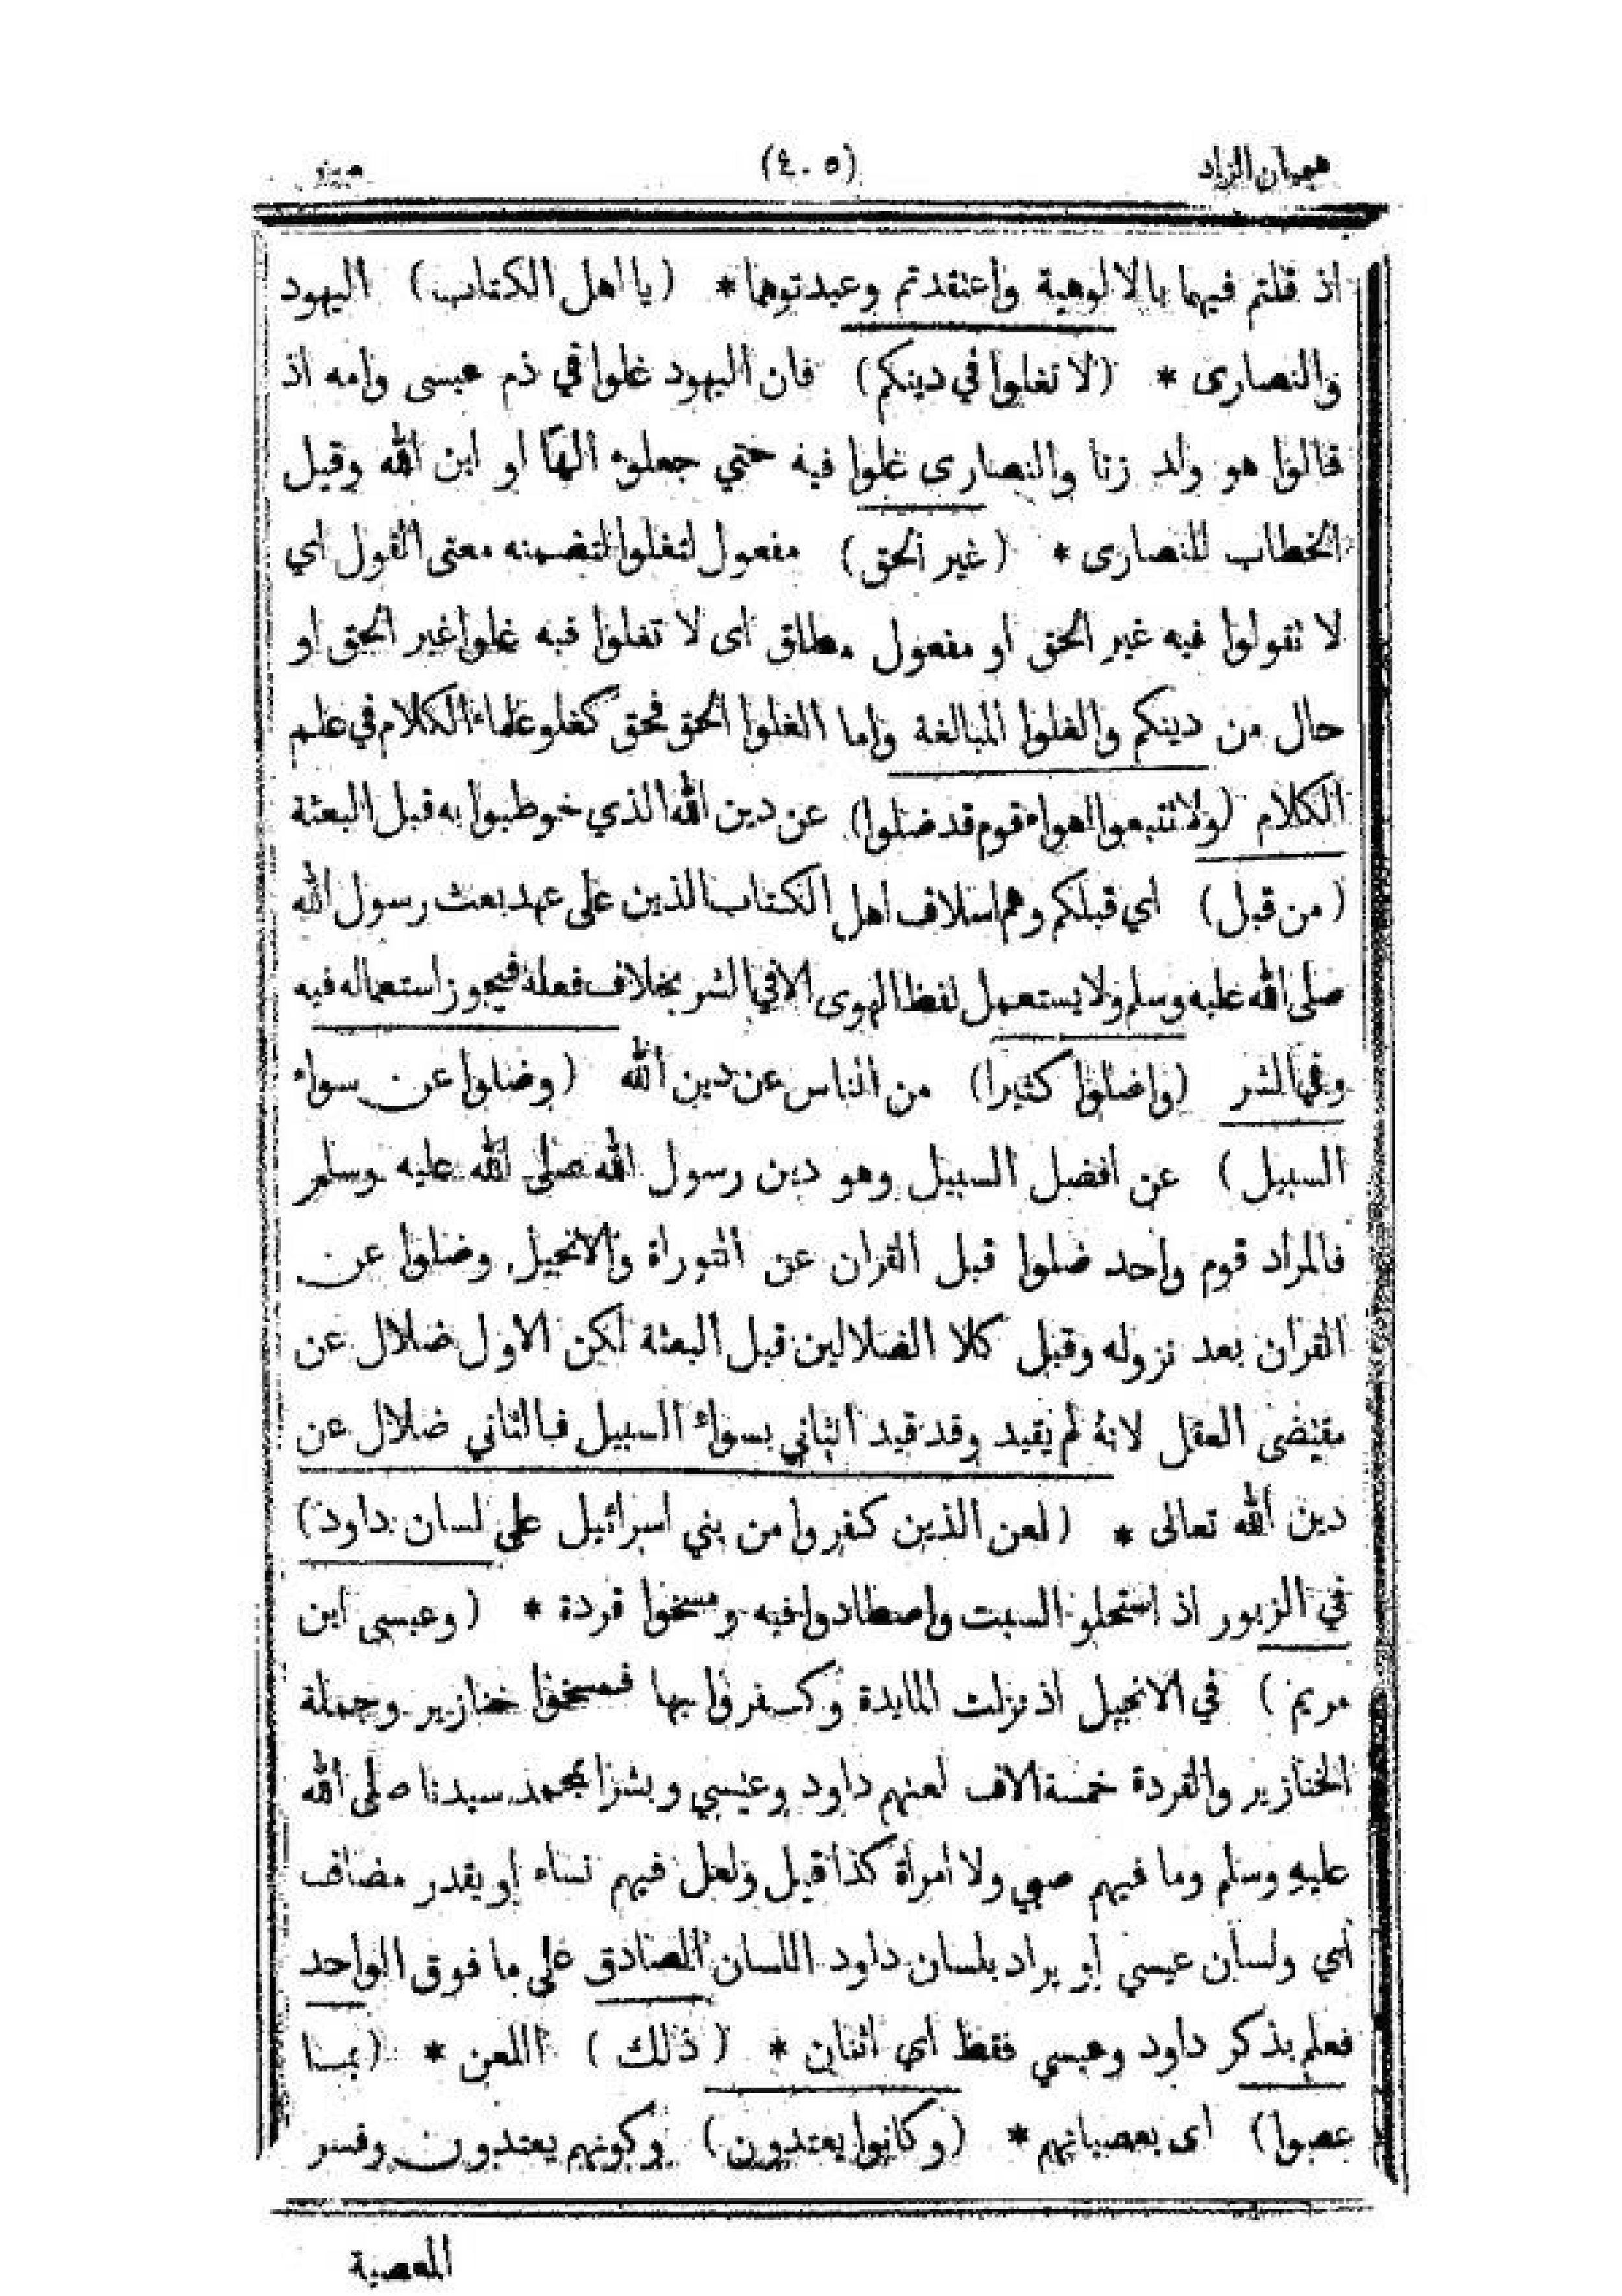 هميان الزاد (٤٠٥)
اذ قلتم فيهما بالالوهية واعتقدتم وعبدتوهما * (يا اهل الكتاب) اليهود
والنصارى * (لا تغلوا في دينكم) فان اليهود غلوا في ذم عيسى وامه اذ
قالوا هو ولد زنا والنصارى غلوا فيه حتي جعلوه الهًا او ابن الله وقيل
الخطاب للنصارى * (غير الحق) مفعول لتغلوا لتضمنه معنى القول اي
لا تقولوا فيه غير الحق او مفعول مطلق اى لا تغلوا فيه غلوا غير الحق او
حال من دينكم والغلوا المبالغة واما الغلوا الحق فحق كغلو علماء الكلام في علم
الكلام (ولا تتبعوا اهواء قوم قد ضلوا) عن دين الله الذي خوطبوا به قبل البعثة
(من قبل) اي قبلكم وهم اسلاف اهل الكتاب الذين على عهد بعث رسول الله
صلى الله عليه وسلم ولا يستعمل لفظ الهوى الا في الشر بخلاف فعله فيجوز استعماله فيه
وفي الشر (واضلوا كثيرا) من الناس عن دين الله (وضلوا عن سواء
السبيل) عن افضل السبيل وهو دين رسول الله صلى الله عليه وسلم
فالمراد قوم واحد ضلوا قبل القران عن التوراة والانجيل وضلوا عن
القرآن بعد نزوله وقيل كلا الضلالين قبل البعثة لكن الاول ضلال عن
مقتضى العقل لانه لم يقيد وقد قيد الثاني بسواء السبيل فبالثاني ضلال عن
دين الله تعالى * (لعن الذين كفروا من بني اسرائيل على لسان داود)
في الزبور اذ استحلو السبت واصطادوا فيه ومسخوا قردة * (وعيسى ابن
مريم) في الانجيل اذ نزلت المايدة وكفروا بها فمسخوا خنازير وجملة
الخنازير والقردة خمسة الاف لعنهم داود وعيسي وبشرا بمحمد سيدنا صلى الله
عليه وسلم وما فيهم صبي ولا امرأة كذا قيل ولعل فيهم نساء او يقدر مضاف
اي ولسان عيسي او يراد بلسان داود اللسان الصادق على ما فوق الواحد
فعلم بذكر داود وعيسي فقط اي اثنان * (ذلك) اللعن * (بما
عصوا) اى بعصيانهم * (وكانوا يعتدون) وكونهم يعتدون وفسر
المعصية